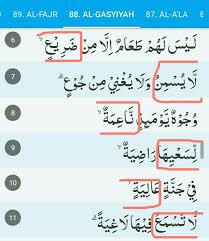 89. AL-FAJR 88. AL-GASYIYAH 87. AL-A'LA
6 لَيْسَ لَهُمْ طَعَامٌ اِلَّا مِنْ ضَرِيْعٍۙ
7 لَّا يُسْمِنُ وَلَا يُغْنِيْ مِنْ جُوْعٍۗ
8 وُجُوْهٌ يَّوْمَىِٕذٍ نَّاعِمَةٌۙ
9 لِّسَعْيِهَا رَاضِيَةٌۙ
10 فِيْ جَنَّةٍ عَالِيَةٍۙ
11 لَّا تَسْمَعُ فِيْهَا لَاغِيَةًۗ